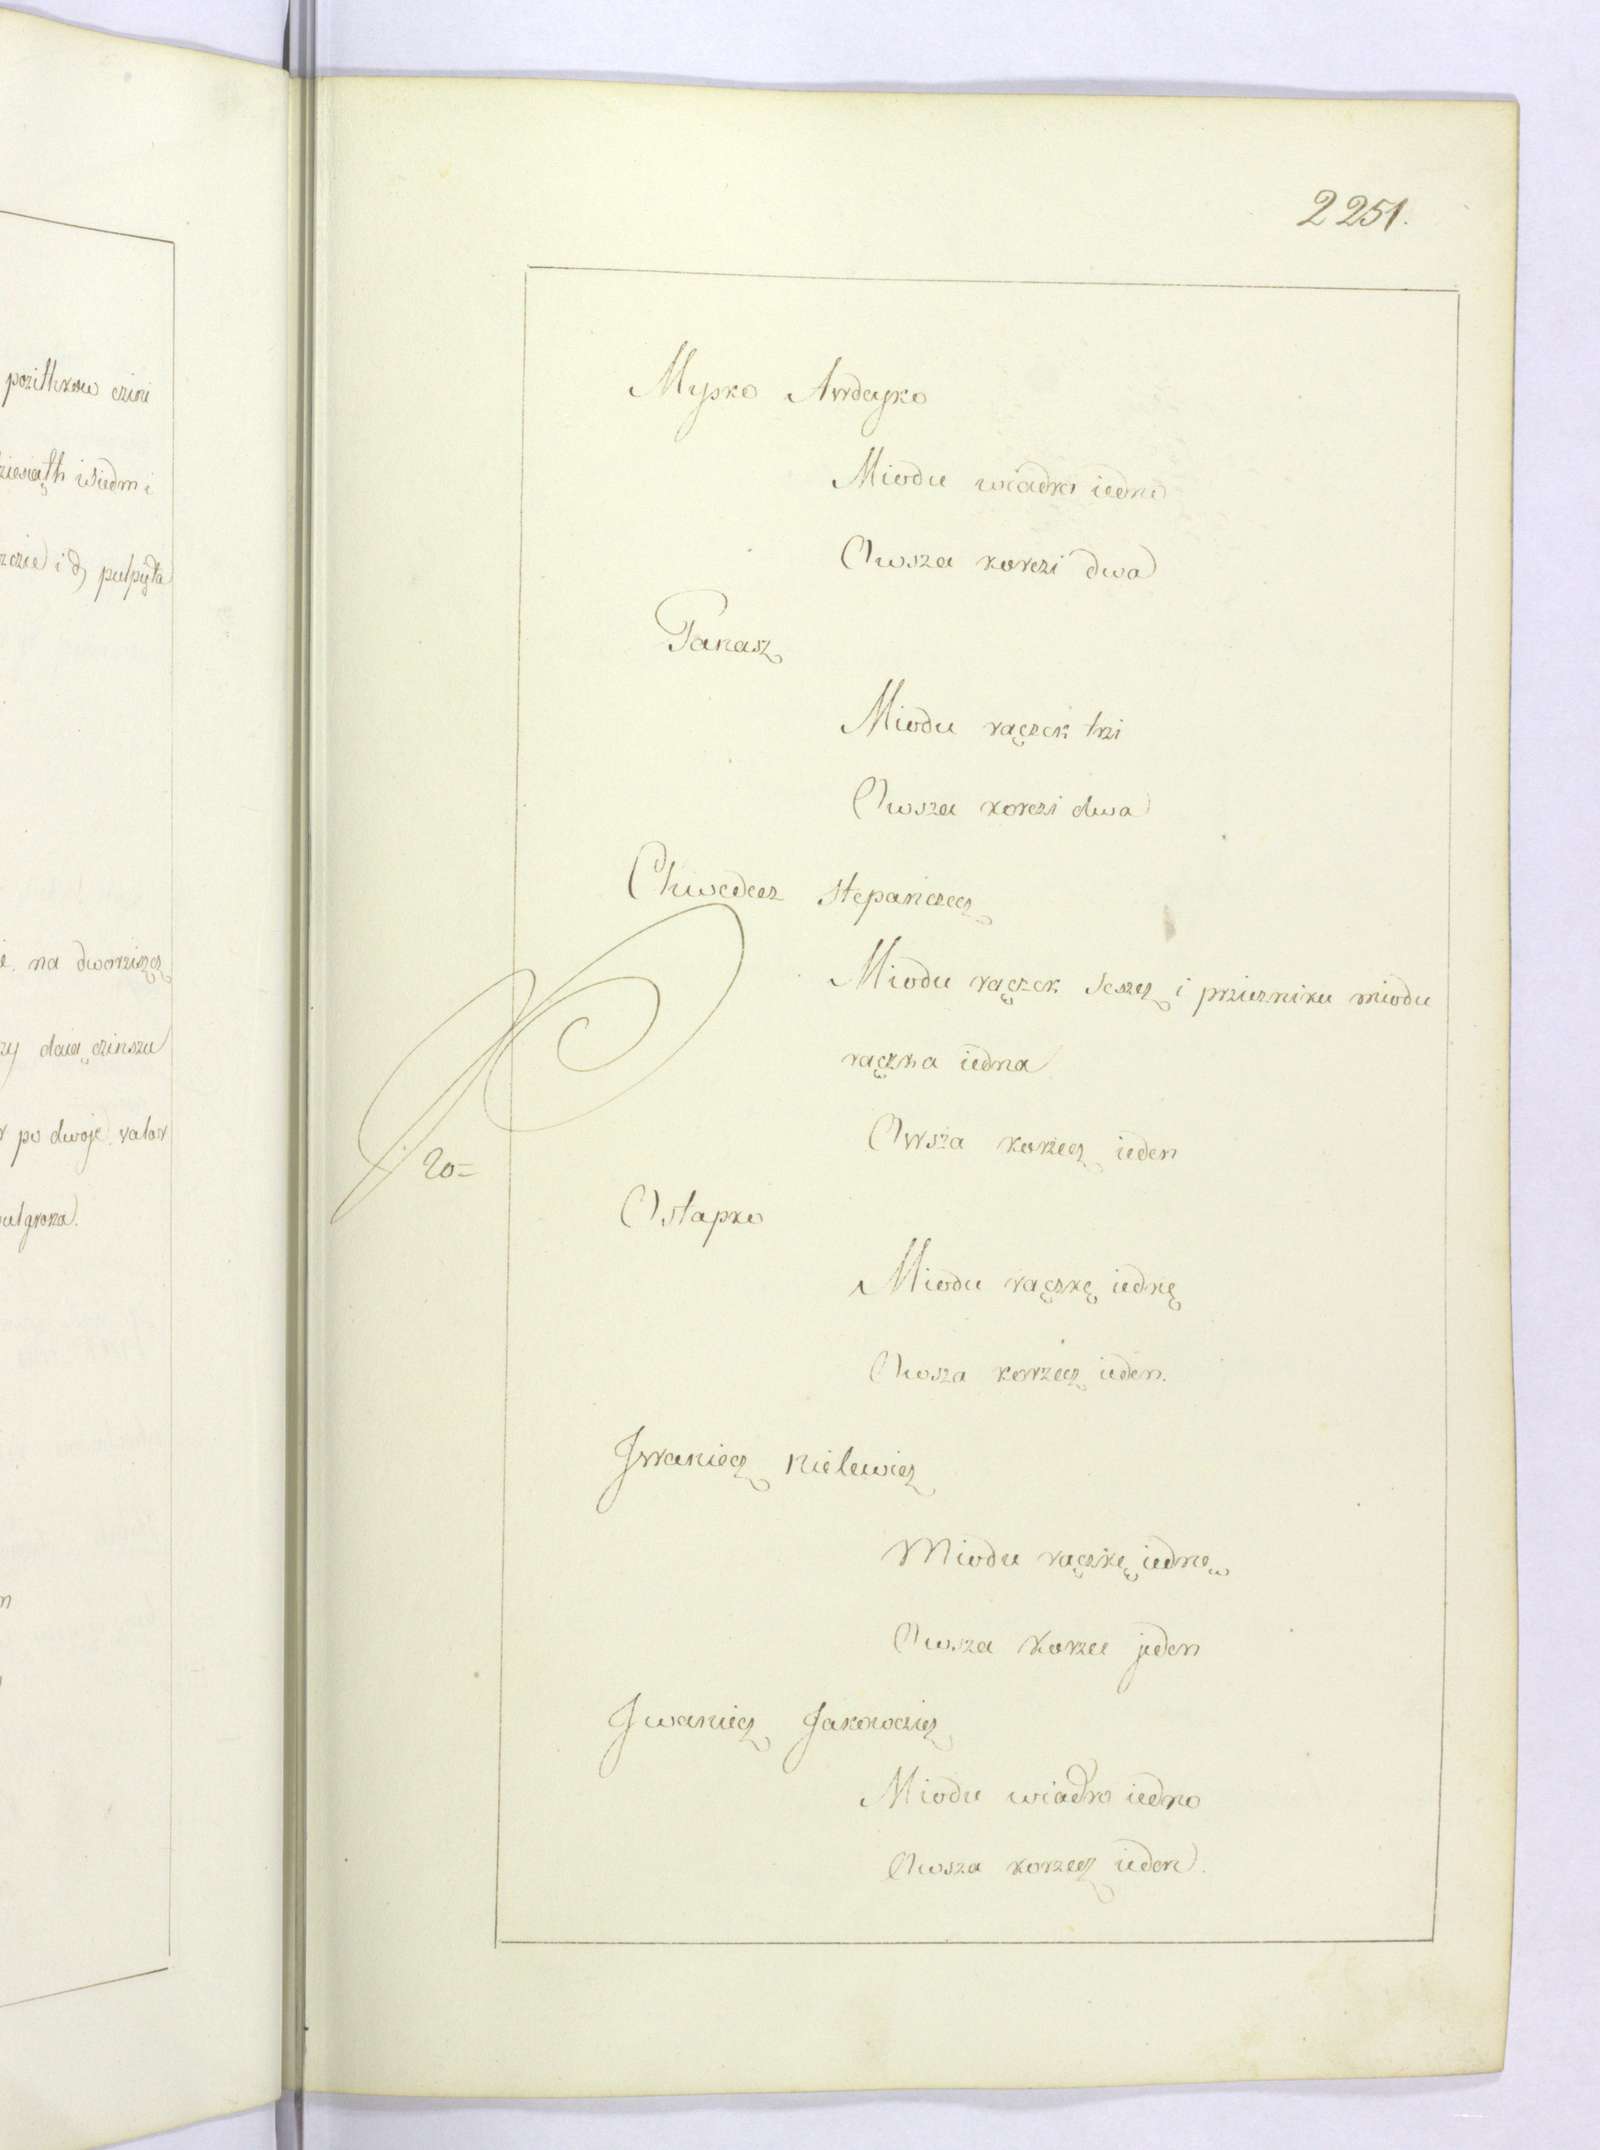 pozithkow czini
dziesiąth i siedm i
i
na dworzisczę
daią czinszu
po dwoje
pulgrona.
2251.
Mysko Awdeyko
Miodu wiadro iedno
Owsza korczi dwa
Panasz
Miodu rączek trzi
Owsza korczi dwa
Chwedecz Stepanczecz
Miodu rączek Seszcz i przierniku miodu
rączka iedna
Owsza korzecz ieden
20=
Ostapko
Miodu rączkę iednę
Owsza korzecz ieden.
Jwaniecz Nielewicz
Miodu rączkę iednę
Owsza Korzec jeden
Jwaniecz Jakowczicz
Miodu wiadro iedno
Owsza korzecz ieden.